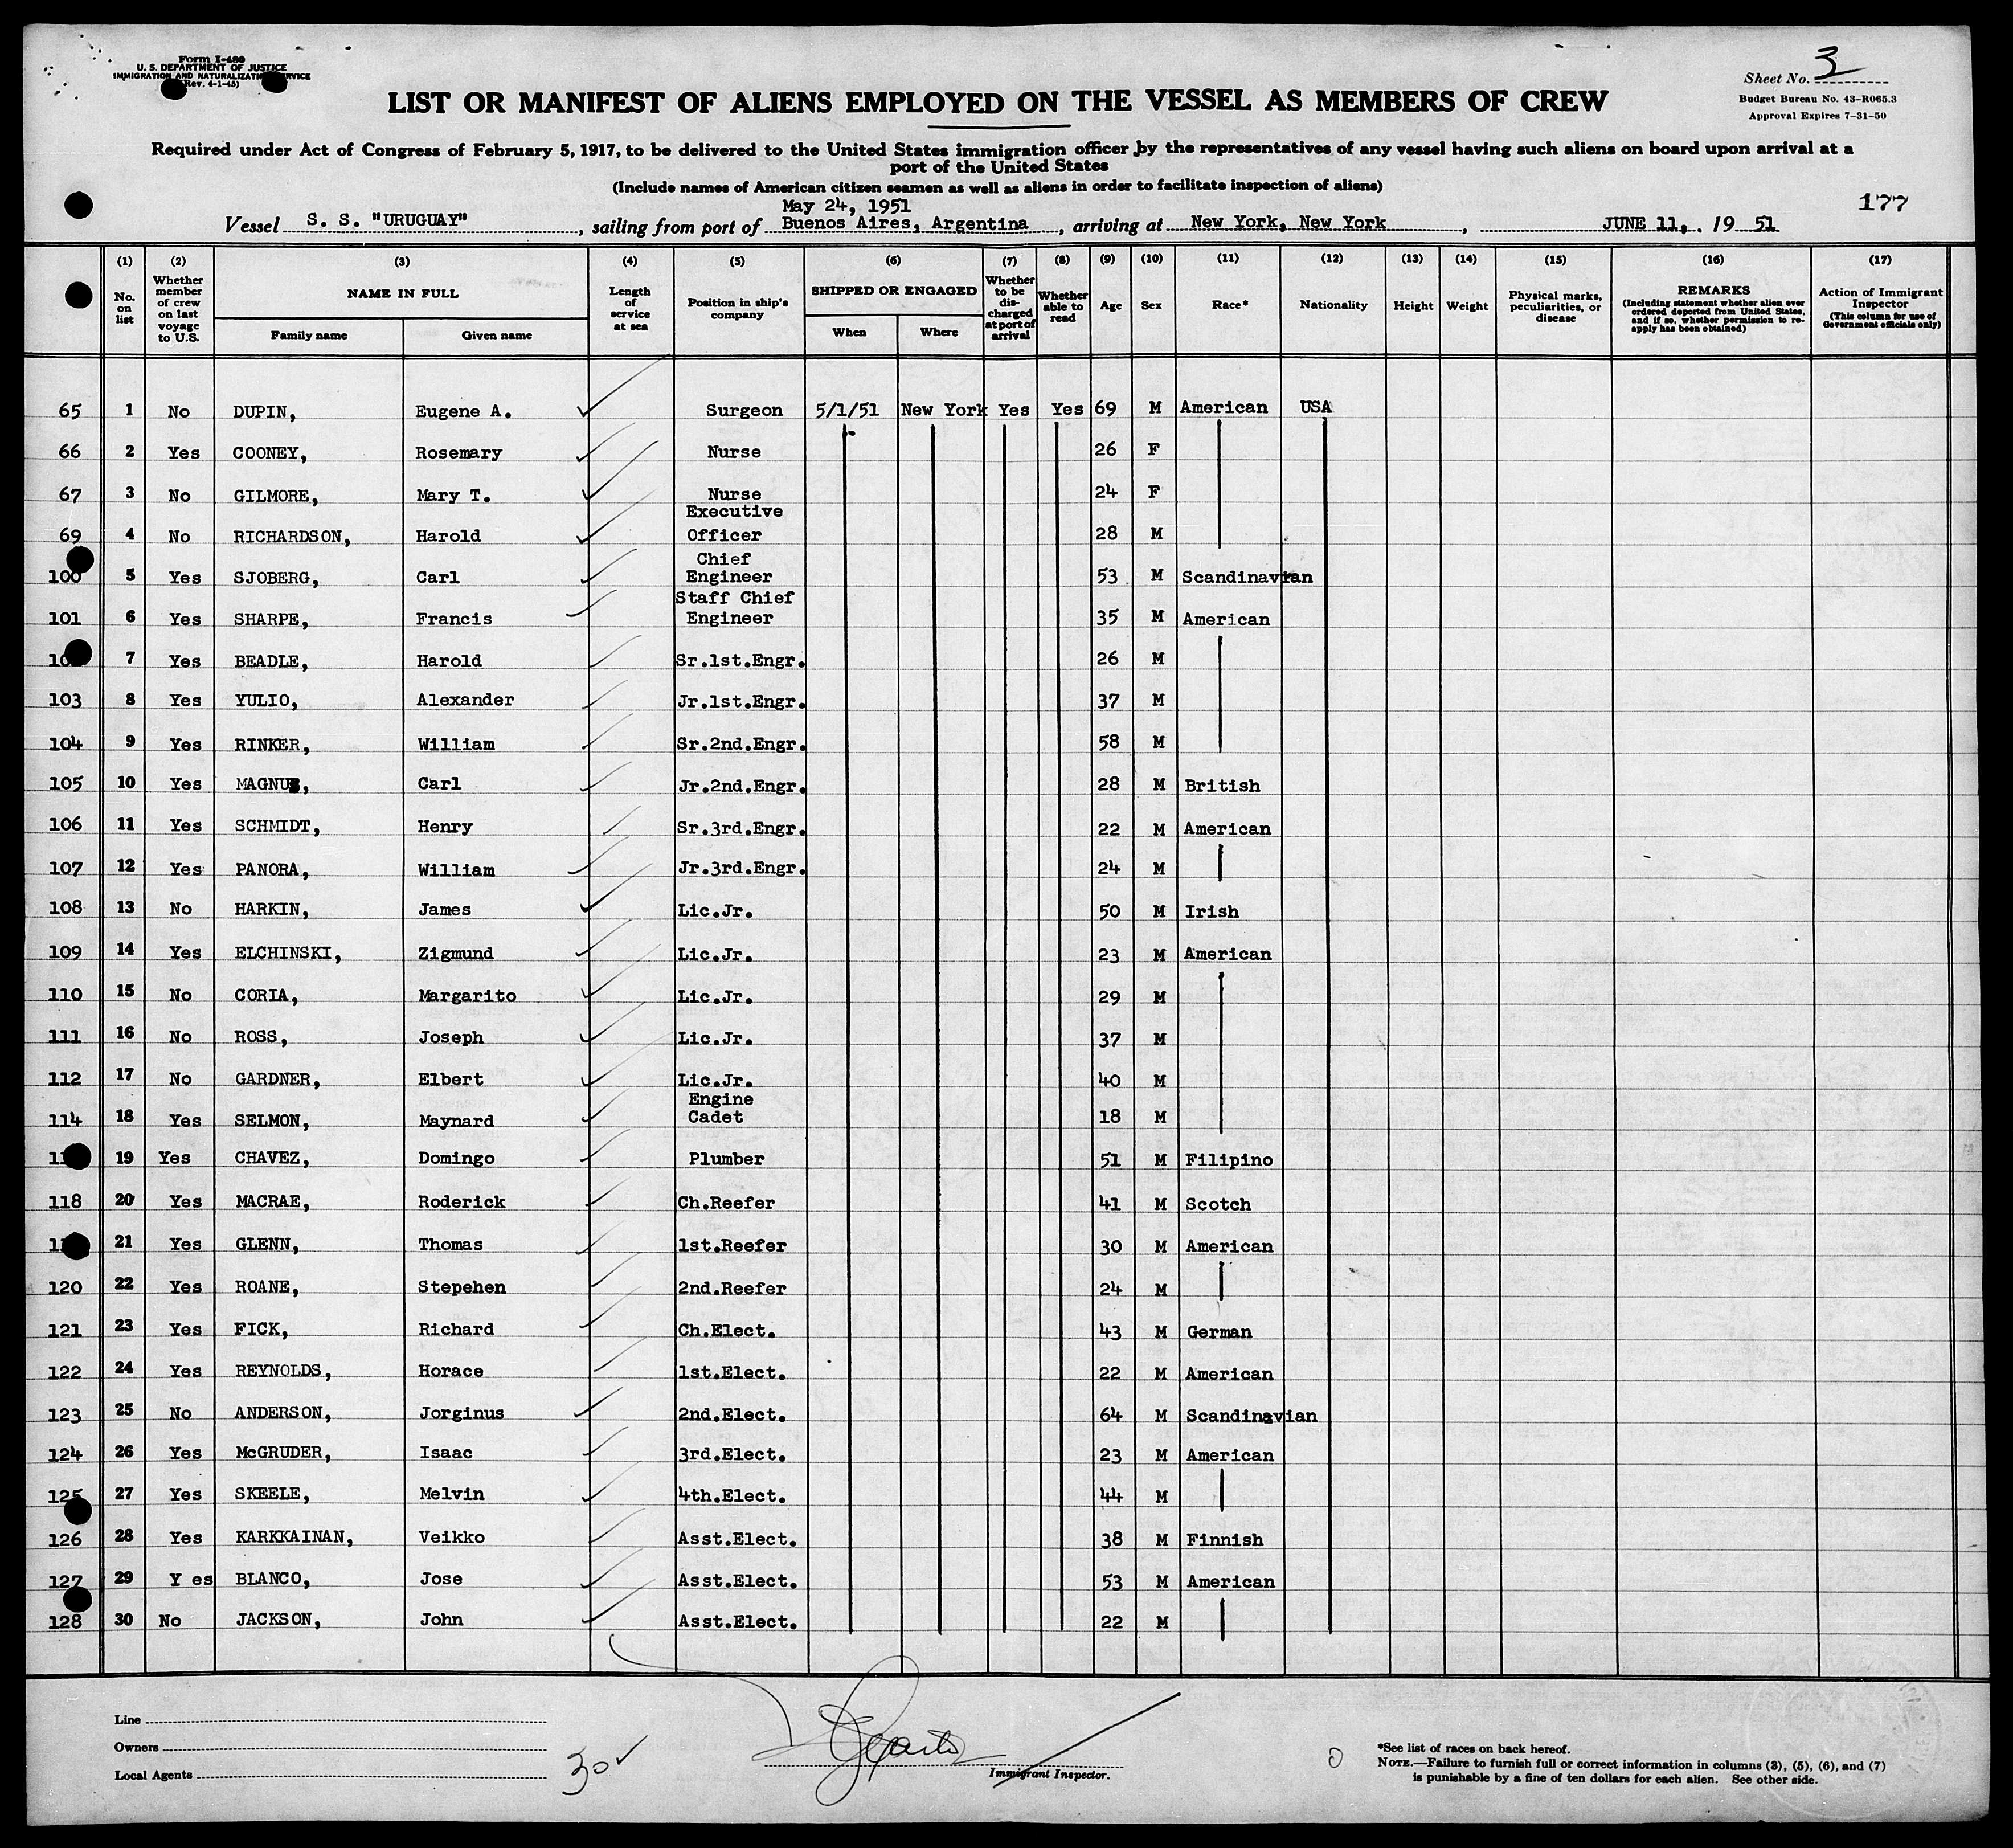 Form I-480
U. S. DEPARTMENT OF JUSTICE
IMMIGRATION AND NATURALIZATION SERVICE
(Rev. 4-1-45)
Sheet No. 3
Budget Bureau No. 43-R065.3
Approval Expires 7-31-50
LIST OR MANIFEST OF ALIENS EMPLOYED ON THE VESSEL AS MEMBERS OF CREW
Required under Act of Congress of February 5, 1917, to be delivered to the United States immigration officer by the representatives of any vessel having such aliens on board upon arrival at a
port of the United States
(Include names of American citizen seamen as well as aliens in order to facilitate inspection of aliens)
177
May 24, 1951
Vessel S. S. "URUGUAY", sailing from port of Buenos Aires, Argentina, arriving at New York, New York, JUNE 11, 19 51
(1) No. on list
(2) Whether member of crew on last voyage to U.S.
(3) NAME IN FULL Family name Given name
(4) Length of service at sea
(5) Position in ship's company
(6) SHIPPED OR ENGAGED When Where
(7) Whether to be discharged at port of arrival
(8) Whether able to read
(9) Age
(10) Sex
(11) Race*
(12) Nationality
(13) Height
(14) Weight
(15) Physical marks, peculiarities, or disease
(16) REMARKS (Including statement whether alien ever ordered deported from United States, and if so, whether permission to re-apply has been obtained)
(17) Action of Immigrant Inspector (This column for use of Government officials only)
65 1 No DUPIN, Eugene A. Surgeon 5/1/51 New York Yes Yes 69 M American USA
66 2 Yes COONEY, Rosemary Nurse 26 F
67 3 No GILMORE, Mary T. Nurse 24 F
69 4 No RICHARDSON, Harold Executive Officer 28 M
100 5 Yes SJOBERG, Carl Chief Engineer 53 M Scandinavian
101 6 Yes SHARPE, Francis Staff Chief Engineer 35 M American
7 Yes BEADLE, Harold Sr.1st.Engr. 26 M
103 8 Yes YULIO, Alexander Jr.1st.Engr. 37 M
104 9 Yes RINKER, William Sr.2nd.Engr. 58 M
105 10 Yes MAGNUS, Carl Jr.2nd.Engr. 28 M British
106 11 Yes SCHMIDT, Henry Sr.3rd.Engr. 22 M American
107 12 Yes PANORA, William Jr.3rd.Engr. 24 M
108 13 No HARKIN, James Lic.Jr. 50 M Irish
109 14 Yes ELCHINSKI, Zigmund Lic.Jr. 23 M American
110 15 No CORIA, Margarito Lic.Jr. 29 M
111 16 No ROSS, Joseph Lic.Jr. 37 M
112 17 No GARDNER, Elbert Lic.Jr. 40 M
114 18 Yes SELMON, Maynard Engine Cadet 18 M
19 Yes CHAVEZ, Domingo Plumber 51 M Filipino
118 20 Yes MACRAE, Roderick Ch.Reefer 41 M Scotch
21 Yes GLENN, Thomas 1st.Reefer 30 M American
120 22 Yes ROANE, Stepehen 2nd.Reefer 24 M
121 23 Yes FICK, Richard Ch.Elect. 43 M German
122 24 Yes REYNOLDS, Horace 1st.Elect. 22 M American
123 25 No ANDERSON, Jorginus 2nd.Elect. 64 M Scandinavian
124 26 Yes McGRUDER, Isaac 3rd.Elect. 23 M American
125 27 Yes SKEELE, Melvin 4th.Elect. 44 M
126 28 Yes KARKKAINAN, Veikko Asst.Elect. 38 M Finnish
127 29 Y es BLANCO, Jose Asst.Elect. 53 M American
128 30 No JACKSON, John Asst.Elect. 22 M
Line
Owners
Local Agents
30 ✓
Immigrant Inspector.
0
*See list of races on back hereof.
NOTE.—Failure to furnish full or correct information in columns (3), (5), (6), and (7)
is punishable by a fine of ten dollars for each alien. See other side.